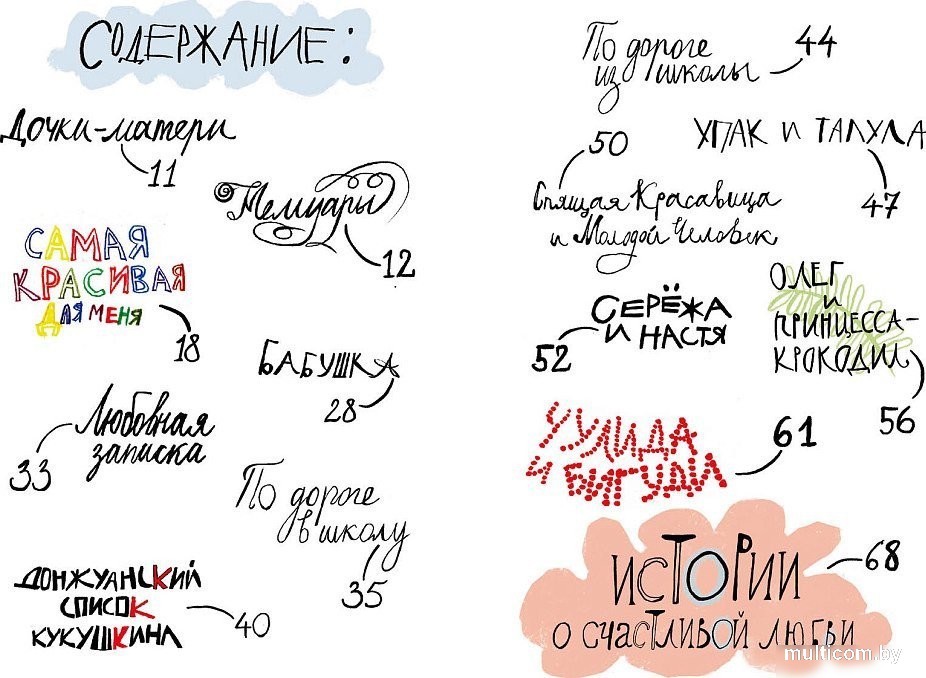 СОДЕРЖАНИЕ:
Дочки-матери
11
Мемуары
12
САМАЯ
КРАСИВАЯ
ДЛЯ МЕНЯ
18
БАБУШКА
28
Любовная
записка
33
По дороге
в школу
35
ДОНЖУАНСКИЙ
СПИСОК
КУКУШКИНА
40
По дороге
из школы
44
УПАК И ТАЛУЛА
47
50
Спящая Красавица
и Молодой Человек
СЕРЁЖА
И НАСТЯ
52
ОЛЕГ
И
ПРИНЦЕССА-
КРОКОДИЛ
56
УУЛИДА
И БИГУДИ
61
ИСТОРИИ
О СЧАСТЛИВОЙ ЛЮБВИ
68
multicom.by